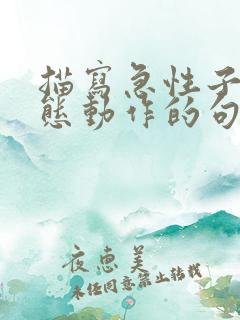 描寫急性子
態動作的句
夜惠美
未經同意禁止轉載